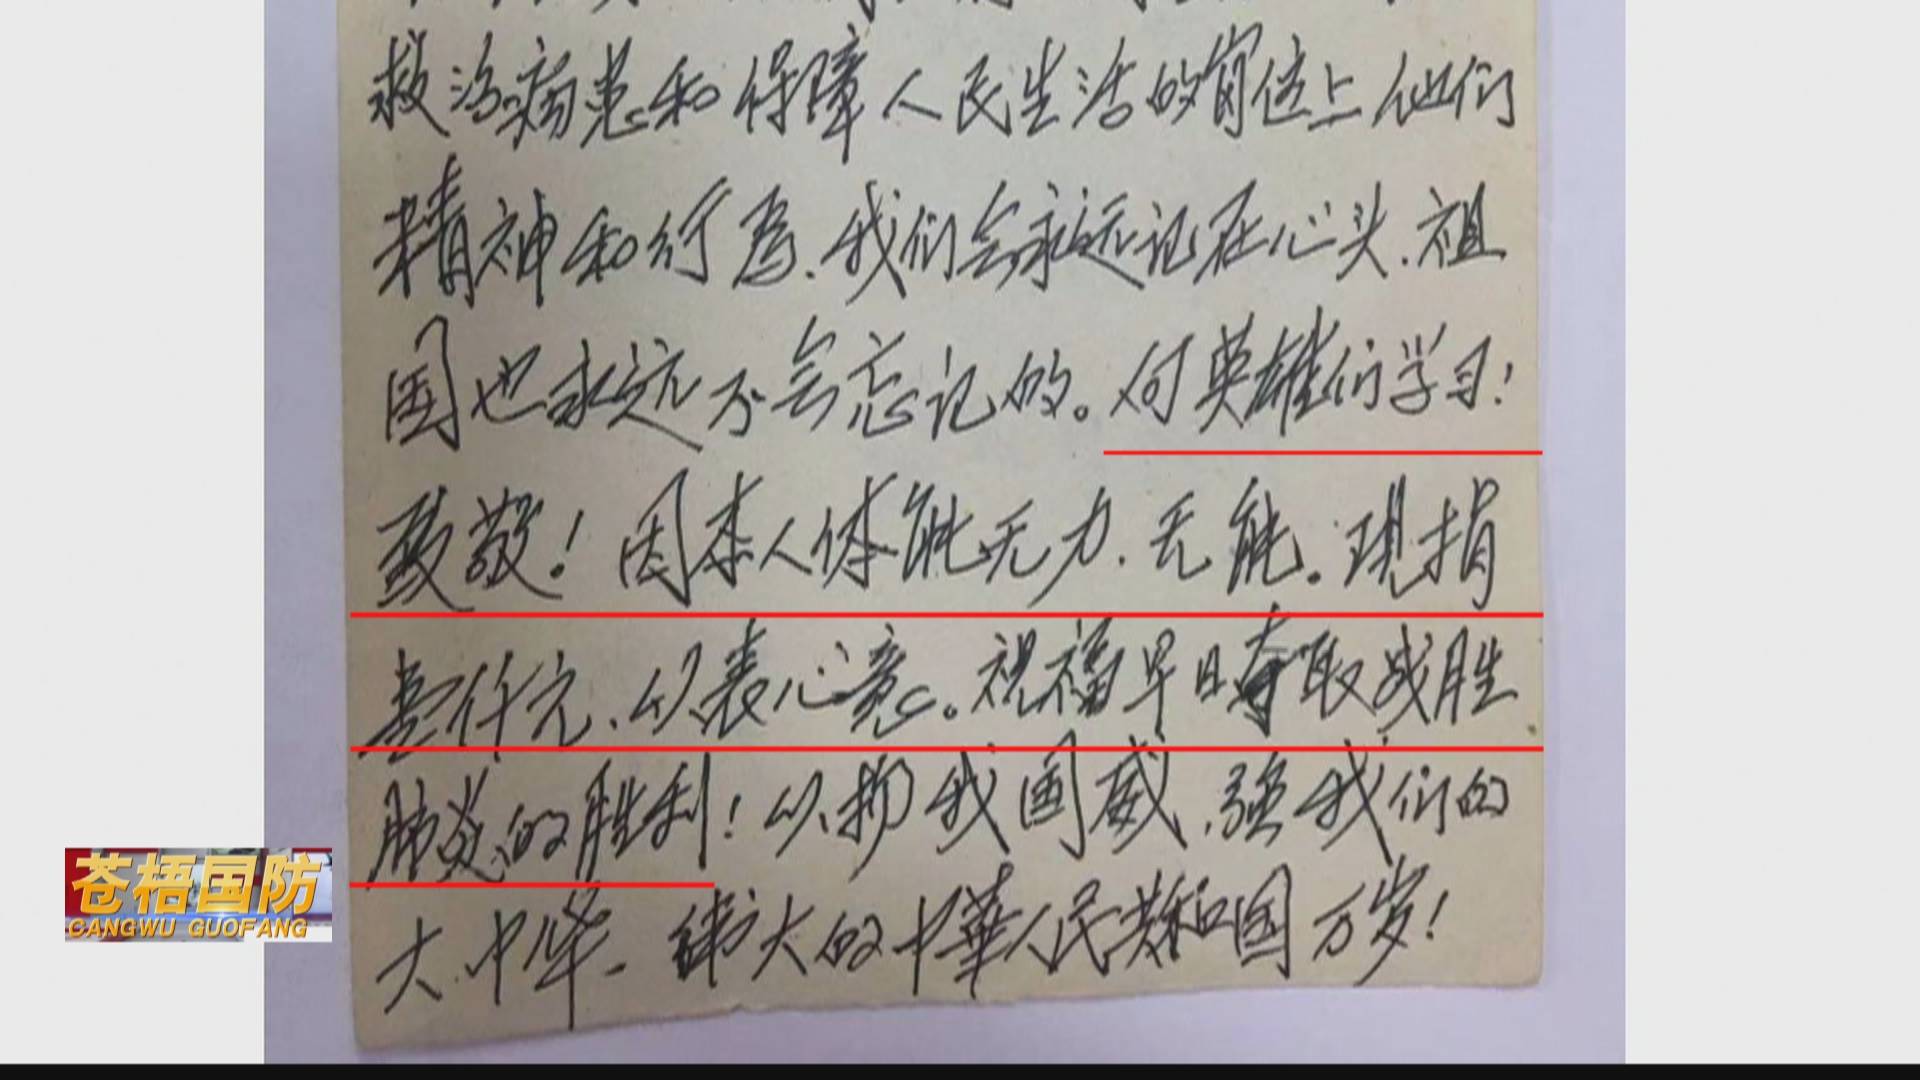 救治病患和保障人民生活的岗位上他们
精神和行为、我们会永远记在心头.祖
国也永远不会忘记的。向英雄们学习!
致敬!因本人体能无力.无能。现捐
壹仟元、以表心意。祝福早日夺取战胜
肺炎的胜利!以扬我国威、强我们的
大中华、伟大的中華人民共和国万岁!
苍梧国防
CANGWU GUOFANG